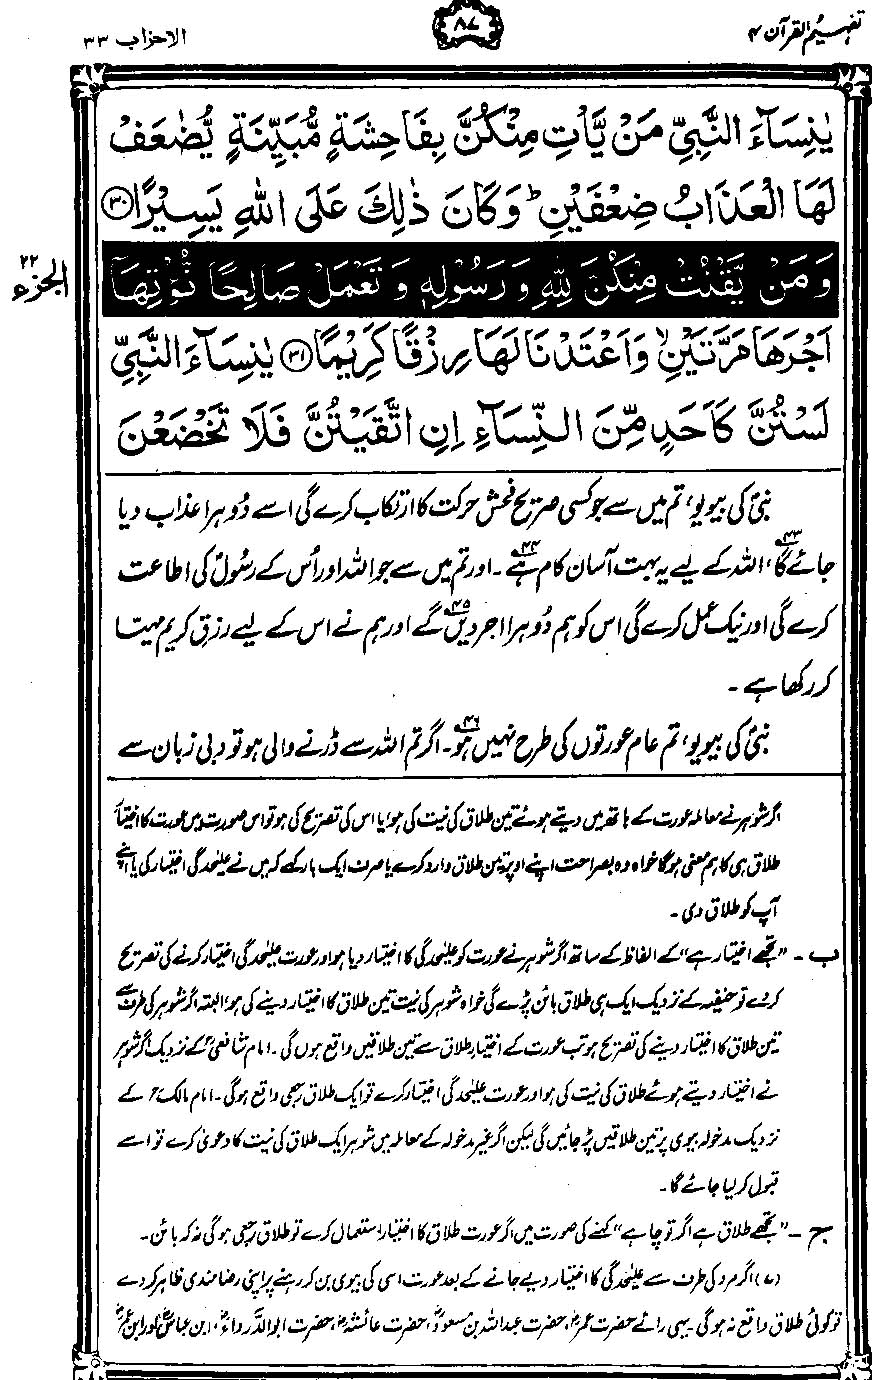 تفہیم القرآن ۴
۸۷
الاحزاب ۳۳
يٰنِسَآءَ النَّبِيِّ مَنْ يَّاْتِ مِنْكُنَّ بِفَاحِشَةٍ مُّبَيِّنَةٍ يُّضٰعَفْ
لَهَا الْعَذَابُ ضِعْفَيْنِ ؕ وَكَانَ ذٰلِكَ عَلَى اللّٰهِ يَسِيْرًا ﴿۳۰﴾
وَمَنْ يَّقْنُتْ مِنْكُنَّ لِلّٰهِ وَرَسُوْلِهٖ وَتَعْمَلْ صَالِحًا نُّؤْتِهَآ
الجزء ۲۲
اَجْرَهَا مَرَّتَيْنِ ۙ وَاَعْتَدْنَا لَهَا رِزْقًا كَرِيْمًا ﴿۳۱﴾ يٰنِسَآءَ النَّبِيِّ
لَسْتُنَّ كَاَحَدٍ مِّنَ النِّسَآءِ اِنِ اتَّقَيْتُنَّ فَلَا تَخْضَعْنَ
نبیؐ کی بیویو، تم میں سے جو کسی صریح فحش حرکت کا ارتکاب کرے گی اسے دوہرا عذاب دیا
جائے گا۴۳، اللہ کے لیے یہ بہت آسان کام ہے۴۴۔ اور تم میں سے جو اللہ اور اُس کے رسولؐ کی اطاعت
کرے گی اور نیک عمل کرے گی اس کو ہم دوہرا اجر دیں۴۵ گے اور ہم نے اس کے لیے رزقِ کریم مہیا
کر رکھا ہے۔
نبیؐ کی بیویو، تم عام عورتوں کی طرح نہیں ہو۴۶۔ اگر تم اللہ سے ڈرنے والی ہو تو دبی زبان سے
اگر شوہر نے معاملہ عورت کے ہاتھ میں دیتے ہوئے تین طلاق کی نیت کی ہو، یا اس کی تصریح کی ہو تو اس صورت میں عورت کا اختیار
طلاق ہی کا ہم معنی ہوگا خواہ وہ بصراحت اپنے اوپر تین طلاق وارد کرے یا صرف ایک بار کہے کہ میں نے علیحدگی اختیار کی یا اپنے
آپ کو طلاق دی۔
ب۔ "تجھے اختیار ہے" کے الفاظ کے ساتھ اگر شوہر نے عورت کو علیحدگی کا اختیار دیا ہو اور عورت علیحدگی اختیار کرنے کی تصریح
کر دے تو حنفیہ کے نزدیک ایک ہی طلاق بائن پڑے گی خواہ شوہر کی نیت تین طلاق کا اختیار دینے کی ہو، البتہ اگر شوہر کی طرف سے
تین طلاق کا اختیار دینے کی تصریح ہو تب عورت کے اختیارِ طلاق سے تین طلاقیں واقع ہوں گی۔ امام شافعیؒ کے نزدیک اگر شوہر
نے اختیار دیتے ہوئے طلاق کی نیت کی ہو اور عورت علیحدگی اختیار کرے تو ایک طلاق رجعی واقع ہوگی۔ امام مالکؒ کے
نزدیک مدخولہ بیوی پر تین طلاقیں پڑ جائیں گی لیکن اگر غیر مدخولہ کے معاملہ میں شوہر ایک طلاق کی نیت کا دعویٰ کرے تو اسے
قبول کر لیا جائے گا۔
ج۔ "تجھے طلاق ہے اگر تو چاہے" کہنے کی صورت میں اگر عورت طلاق کا اختیار استعمال کرے تو طلاق رجعی ہوگی نہ کہ بائن۔
(۷) اگر مرد کی طرف سے علیحدگی کا اختیار دیے جانے کے بعد عورت اسی کی بیوی بن کر رہنے پر اپنی رضامندی ظاہر کر دے
تو کوئی طلاق واقع نہ ہوگی۔ یہی رائے حضرت عمرؓ، حضرت عبداللہ بن مسعودؓ، حضرت عائشہؓ، حضرت ابوالدرداءؓ، ابن عباسؓ اور ابن عمرؓ